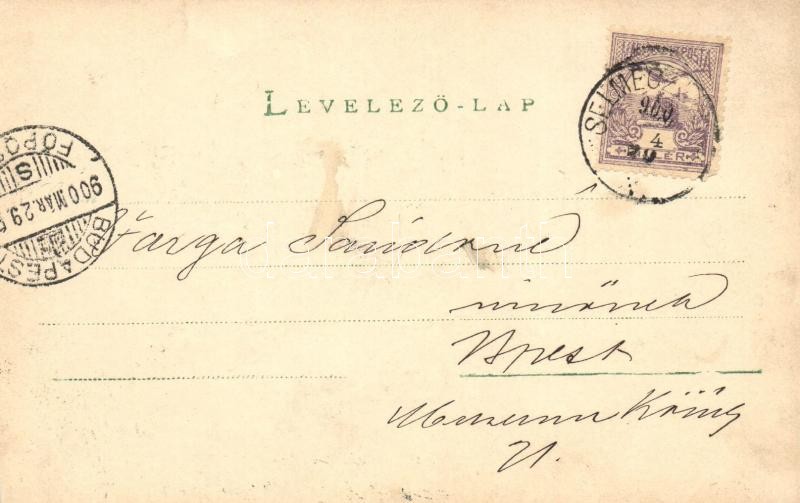 MAGYAR POSTA
SELMECZ
900
4
FILLÉR
LEVELEZŐ-LAP
FŐPOS
S
900 MÁR. 29.
BUDAPEST
Varga Sándorné
úrnőnek
Bpest
Muzeum Körút